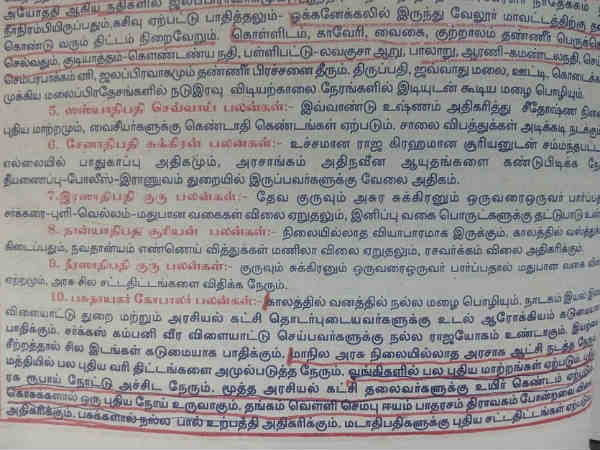 அயோத்தி ஆகிய நதிகளில்
நீர்நிரம்பியிருப்பதும்,கசிவு ஏற்பட்டு பாதித்தலும்:- ஒக்கனேக்கலில் இருந்து வேலூர் மாவட்டத்திற்கு
கொண்டு வரும் திட்டம் நிறைவேறும். கொள்ளிடம், காவேரி, வைகை, குற்றாலம் தண்ணீர் பெருக்கெ
செல்வதும், குடியாத்தம்-கௌண்டண்ய நதி, பள்ளிபட்டு-லவகுசா ஆறு, பாலாறு, ஆரணி-கமண்டலநதி, செய்
செம்பரபாக்கம் ஏரி, ஜலப்பிரவாகமும் தண்ணீர் பிரச்சனை தீரும். திருப்பதி, ஜவ்வாது மலை, ஊட்டி, கொடைக்
முக்கிய மலைப்பிரதேசங்களில் நடுஇரவு விடியற்காலை நேரங்களில் இடியுடன் கூடிய மழை பொழியும்.
5. ஸஸ்யாதிபதி செவ்வாய் பலன்கள்:- இவ்வாண்டு உஷ்ணம் அதிகரித்து சீதோஷ்ண நிலை
புதிய மாற்றமும், வைசீயர்களுக்கு கெண்டாதி கெண்டங்கள் ஏற்படும். சாலை விபத்துக்கள் அடிக்கடி நடக்கும்
6. சேனாதிபதி சுக்கிரன் பலன்கள்:- உச்சமான ராஜ கிரஹமான சூரியனுடன் சம்மந்தபட்ட
எல்லையில் பாதுகாப்பு அதிகமும், அரசாங்கம் அதிநவீன ஆயுதங்களை கண்டுபிடிக்க நே
தீயணைப்பு-போலீஸ்-இராணுவம் துறையில் இருப்பவர்களுக்கு வேலை அதிகம்.
7.இரஸாதிபதி குரு பலன்கள்:- தேவ குருவும் அசுர சுக்கிரனும் ஒருவரைஒருவர் பார்ப்பத
சர்க்கரை-புளி-வெல்லம்-மதுபான வகைகள் விலை ஏறுதலும், இனிப்பு வகை பொருட்களுக்கு தட்டுபாடு
8. தான்யாதிபதி சூரியன் பலன்கள்:- நிலையில்லாத வியாபாரமாக இருக்கும். காலத்தில் வஸ்து
கிடைப்பதும், நவதான்யம் எண்ணெய் வித்துக்கள் மணிலா விலை ஏறுதலும், ரசவர்க்கம் விலை அதிகரிக்கும்.
9. நீரஸாதிபதி குரு பலன்கள்:- குருவும் சுக்கிரனும் ஒருவரைஒருவர் பார்ப்பதால் மதுபான வகை விலை
ஏற்றமும், அரசு சில சட்டதிட்டங்களை விதிக்க நேரும்.
10. பசுநாயகர் கோபாலர் பலன்கள்:- காலத்தில் வனத்தில் நல்ல மழை பொழியும். நாடகம் இயல் இசை
விளையாட்டு துறை மற்றும் அரசியல் கட்சி தொடர்புடையவர்களுக்கு உடல் ஆரோக்கியம் கடுமையாக
பாதிக்கும். சர்க்கஸ் கம்பனி வீர விளையாட்டு செய்பவர்களுக்கு நல்ல ராஜயோகம் உண்டாகும். இயற்கை
சீற்றத்தால் சில இடங்கள் கடுமையாக பாதிக்கும். மாநில அரசு நிலையில்லாத அரசாக ஆட்சி நடத்த நேரும்
மத்தியில் பல புதிய வரி திட்டங்களை அமுல்படுத்த நேரும். வங்கிகளில் பல புதிய மாற்றங்கள் ஏற்படும்
ரக ரூபாய் நோட்டு அச்சிட நேரும். மூத்த அரசியல் கட்சி தலைவர்களுக்கு உயிர் கெண்டம்
கொசுக்களால் ஒரு புதிய நோய் உருவாகும். தங்கம் வெள்ளி செம்பு ஈயம் பாதரசம் திராவகம் போன்றவை
அதிகரிக்கும். பசுக்களால் நல்ல பால் உற்பத்தி அதிகரிக்கும். மடாதிபதிகளுக்கு புதிய சட்டதிட்டங்கள்